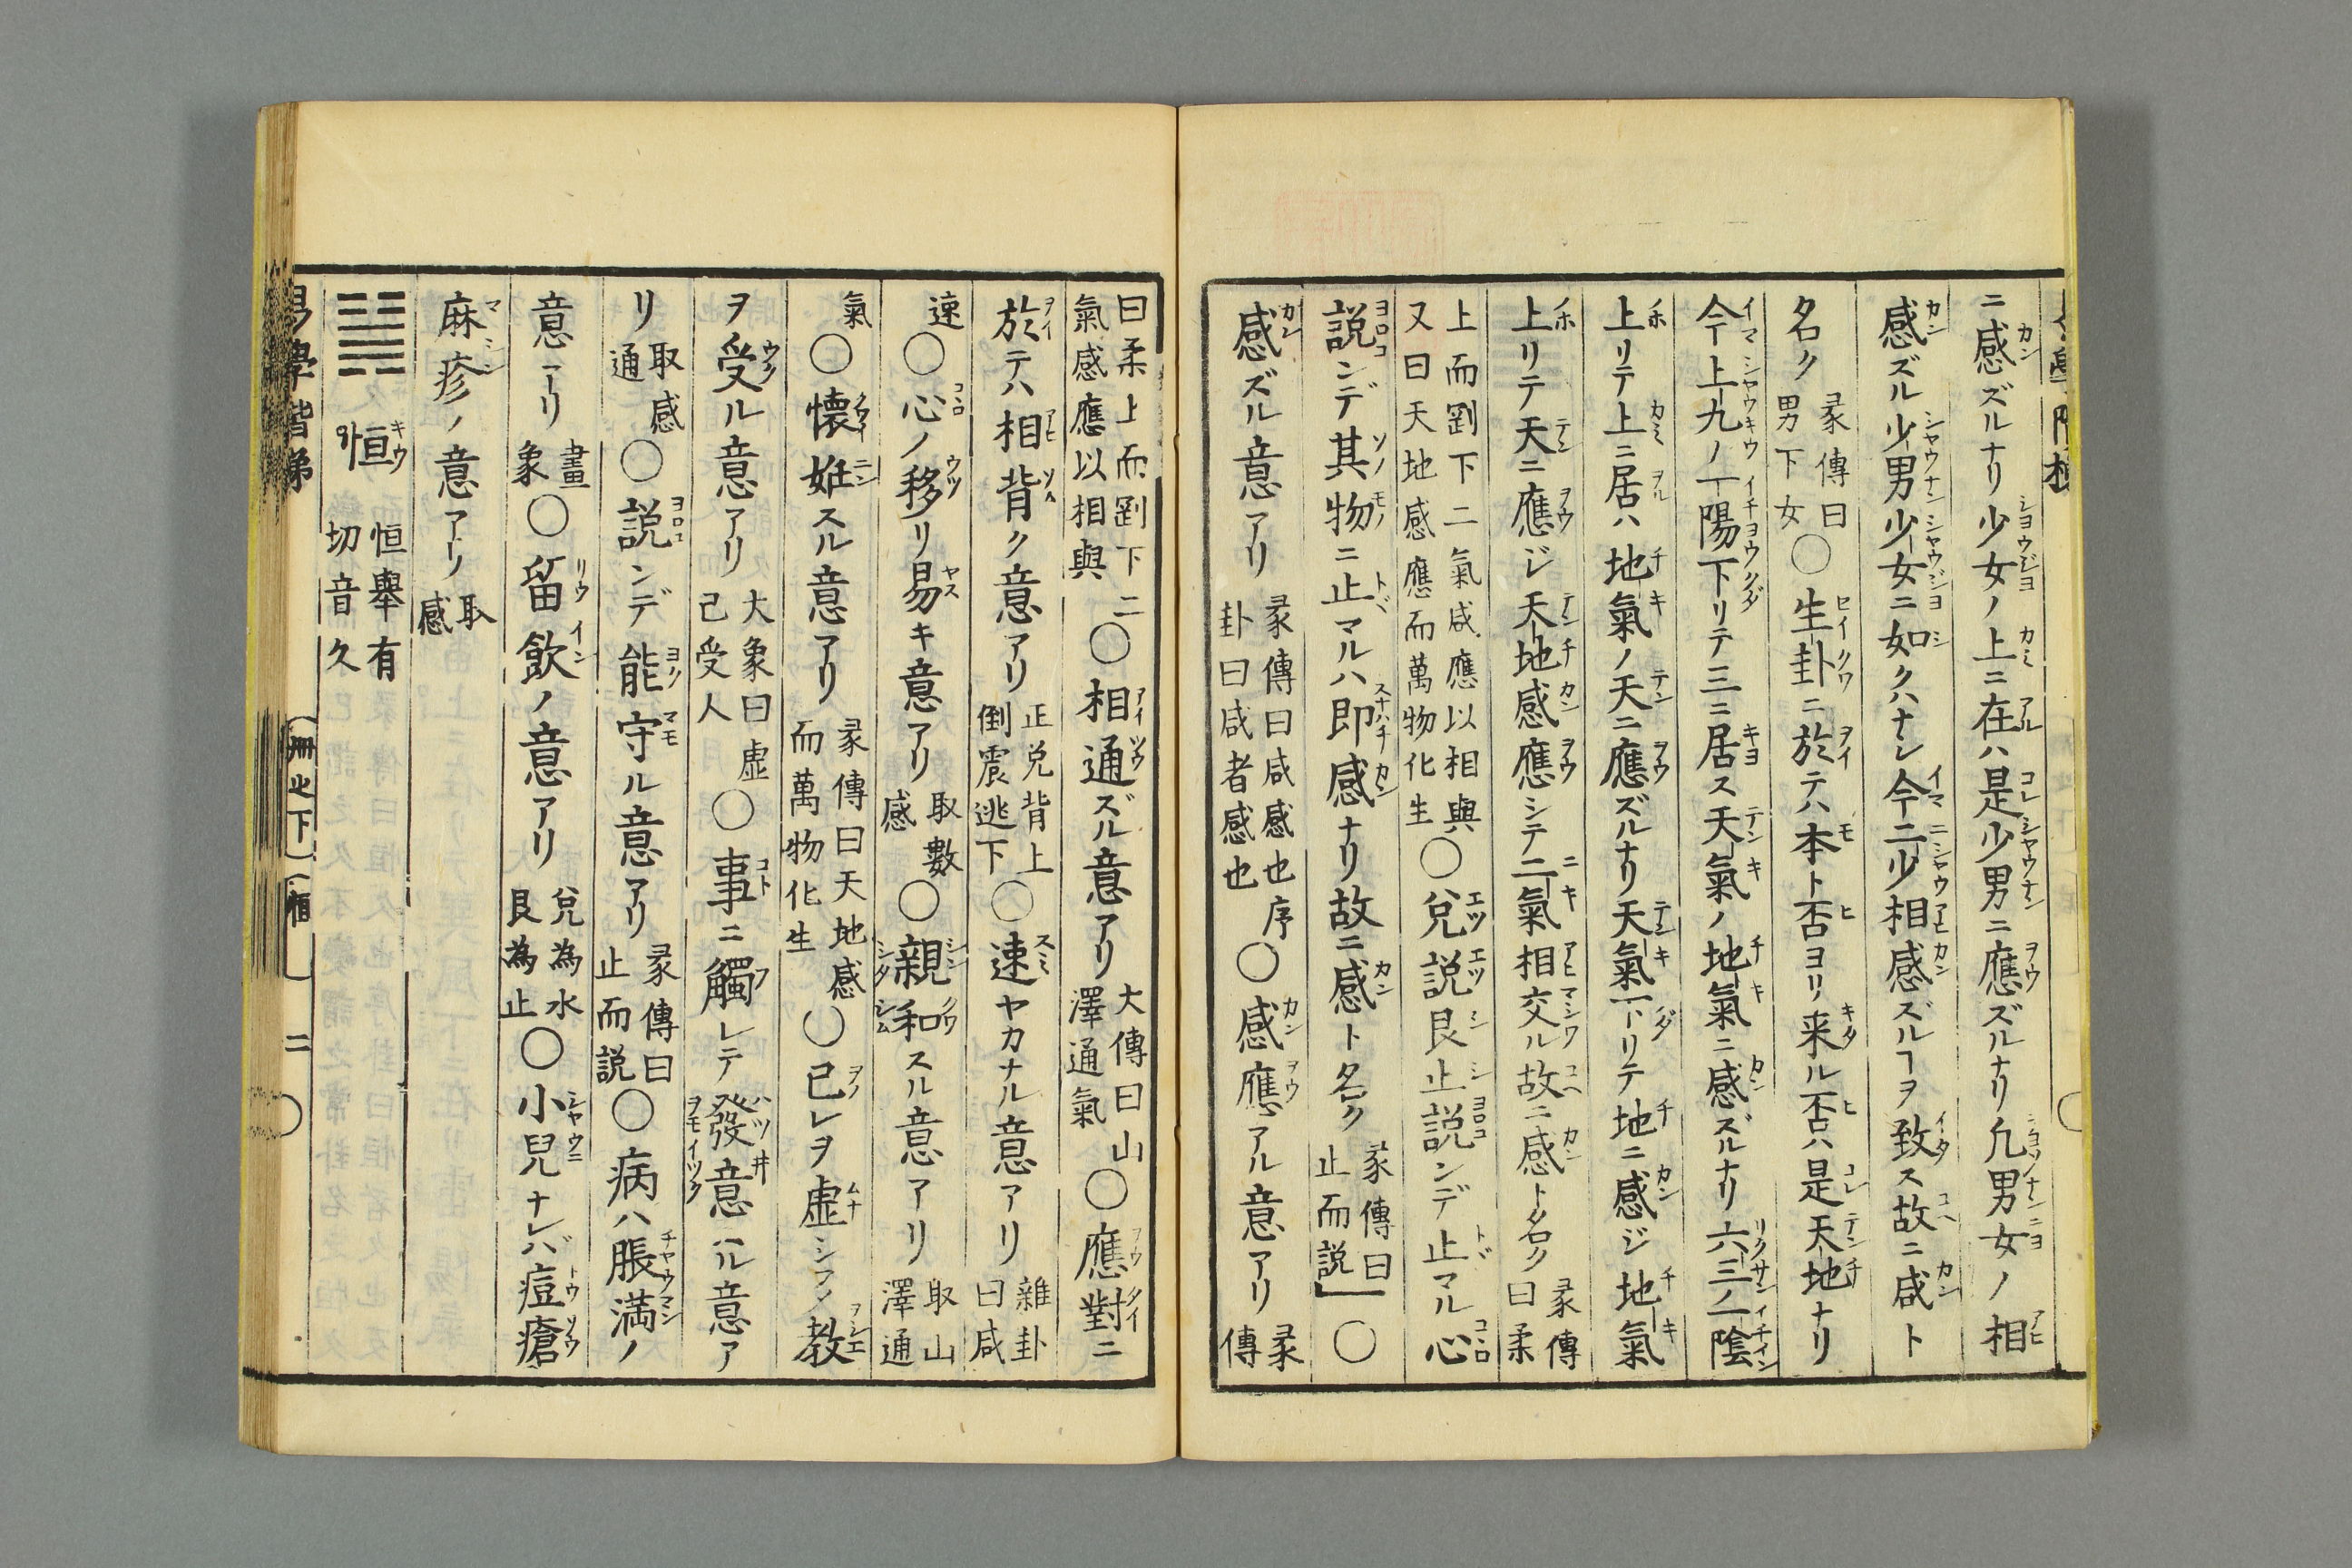 ニ感ズルナリ少女ノ上ニ在ハ是少男ニ應ズルナリ凢男女ノ相
感ズル少男少女ニ如クハナシ今二少相感ズルヿヲ致ス故ニ咸ト
名ク
彖傳曰
男下女
○生卦ニ於テハ本ト否ヨリ来ル否ハ是天地ナリ
今上九ノ一陽下リテ三ニ居ス天氣ノ地氣ニ感ズルナリ六三ノ一陰
上リテ上ニ居ハ地氣ノ天ニ應ズルナリ天氣下リテ地ニ感ジ地氣
上リテ天ニ應ジ天地感應シテ二氣相交ル故ニ感ト名ク
彖傳
曰柔
上而剛下二氣感應以相與
又曰天地感應而萬物化生
○兌説艮止説ンデ止マル心
説ンデ其物ニ止マルハ即感ナリ故ニ感ト名ク
彖傳曰
止而説
○
感ズル意アリ
彖傳曰咸感也序
卦曰咸者感也
○感應アル意アリ
彖
傳
曰柔上而剛下二
氣感應以相與
○相通ズル意アリ
大傳曰山
澤通氣
○應對ニ
於テハ相背ク意アリ
正兌背上
倒震逃下
○速ヤカナル意アリ
雜卦
曰咸
速
○心ノ移リ易キ意アリ
取數
感
○親和スル意アリ
取山
澤通
氣
○懐妊スル意アリ
彖傳曰天地感
而萬物化生
○己レヲ虚シフノ教
ヲ受ル意アリ
大象曰虚
己受人
○事ニ觸レテ發意ハル意ア
リ
取感
通
○説ンデ能守ル意アリ
彖傳曰
止而説
○病ハ脹満ノ
意アリ
畫
象
○留飲ノ意アリ
兌為水
艮為止
○小兒ナレバ痘瘡
麻疹ノ意アリ
取
感
䷟ 恒
恒擧有
切音久
易學階梯
冊之下
恒
二